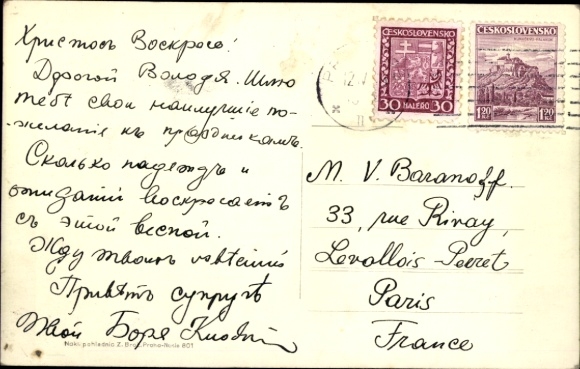 Христосъ Воскресе!
Дорогой Володя. Шлю
тебѣ свои наилучшіе по-
желанія къ праздникамъ.
Сколько надеждъ и
ожиданій воскресаетъ
съ этой весной.
Жду твоихъ
Привѣтъ супругѣ
Твой Боря
Nakl. pohlednic Z. Praha-Nusle 801
ČESKOSLOVENSKO
30 HALÉŘŮ 30
ČESKOSLOVENSKO
1.20 Kč 1.20 Kč
M. V. Baranoff.
33, rue Rivay,
Levallois Perret
Paris
France